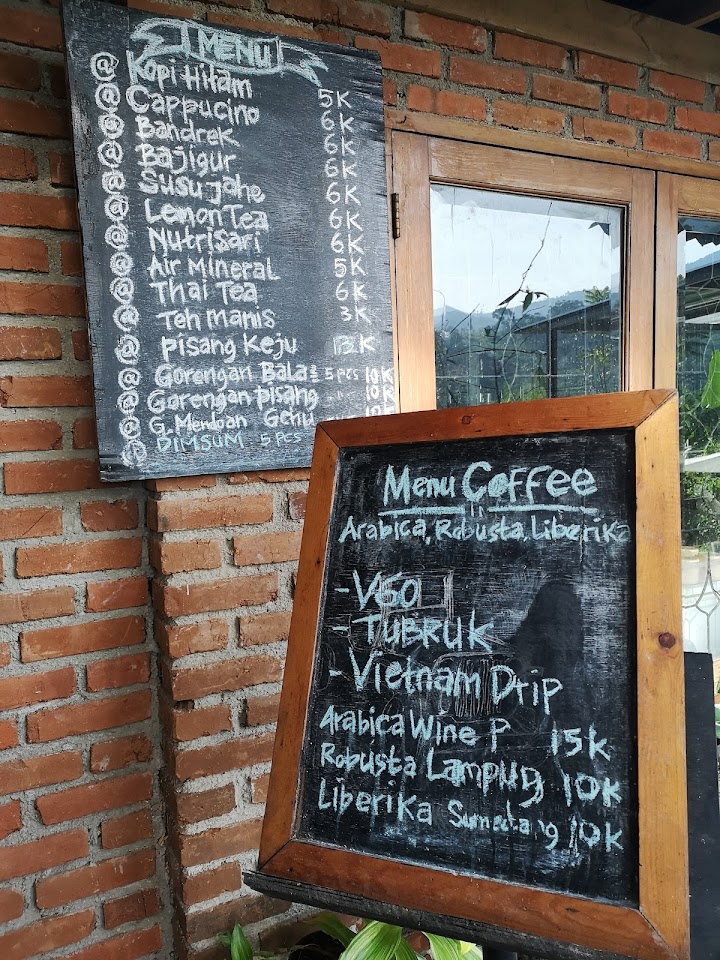 MENU
@ Kopi Hitam 5K
@ Cappucino 6K
@ Bandrek 6K
@ Bajigur 6K
@ Susu Jahe 6K
@ Lemon Tea 6K
@ Nutrisari 6K
@ Air Mineral 5K
@ Thai Tea 6K
@ Teh Manis 3K
@ Pisang Keju
@ Gorengan Bala² 5 pcs 10K
@ Gorengan pisang 10K
@ G. Mendoan Gehu 10K
@ DIMSUM 5 PCS
Menu Coffee
Arabica, Robusta, Liberika
- V60
- TUBRUK
- Vietnam Drip
Arabica Wine P 15K
Robusta Lampung 10K
Liberika Sumedang 10K